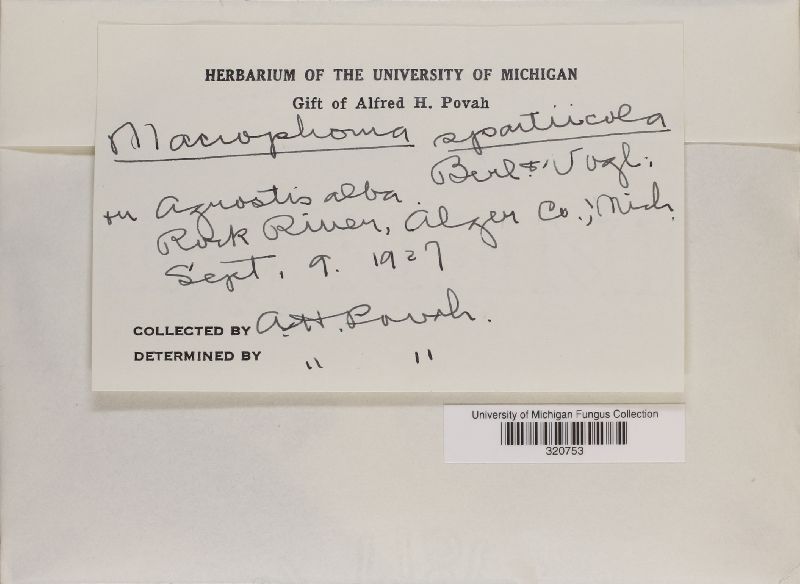 HERBARIUM OF THE UNIVERSITY OF MICHIGAN
Gift of Alfred H. Povah
Macrophoma spartiicola
Berl & Vogl.
on Agrostis alba.
Rock River, Alger Co., Mich.
Sept. 9. 1927
COLLECTED BY A.H. Povah.
DETERMINED BY " "
University of Michigan Fungus Collection
320753